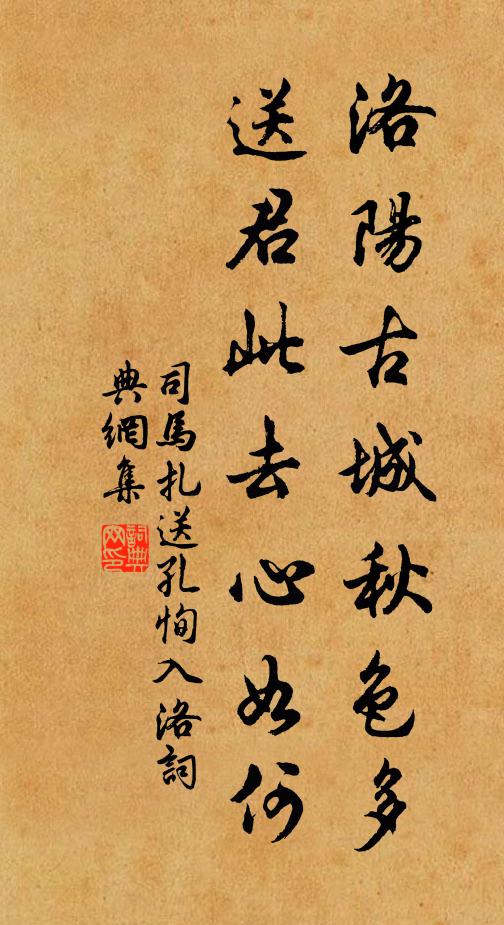 洛陽古城秋色多
送君此去心如何
司馬扎送孔恂入洛詞
典網集
詞典網印